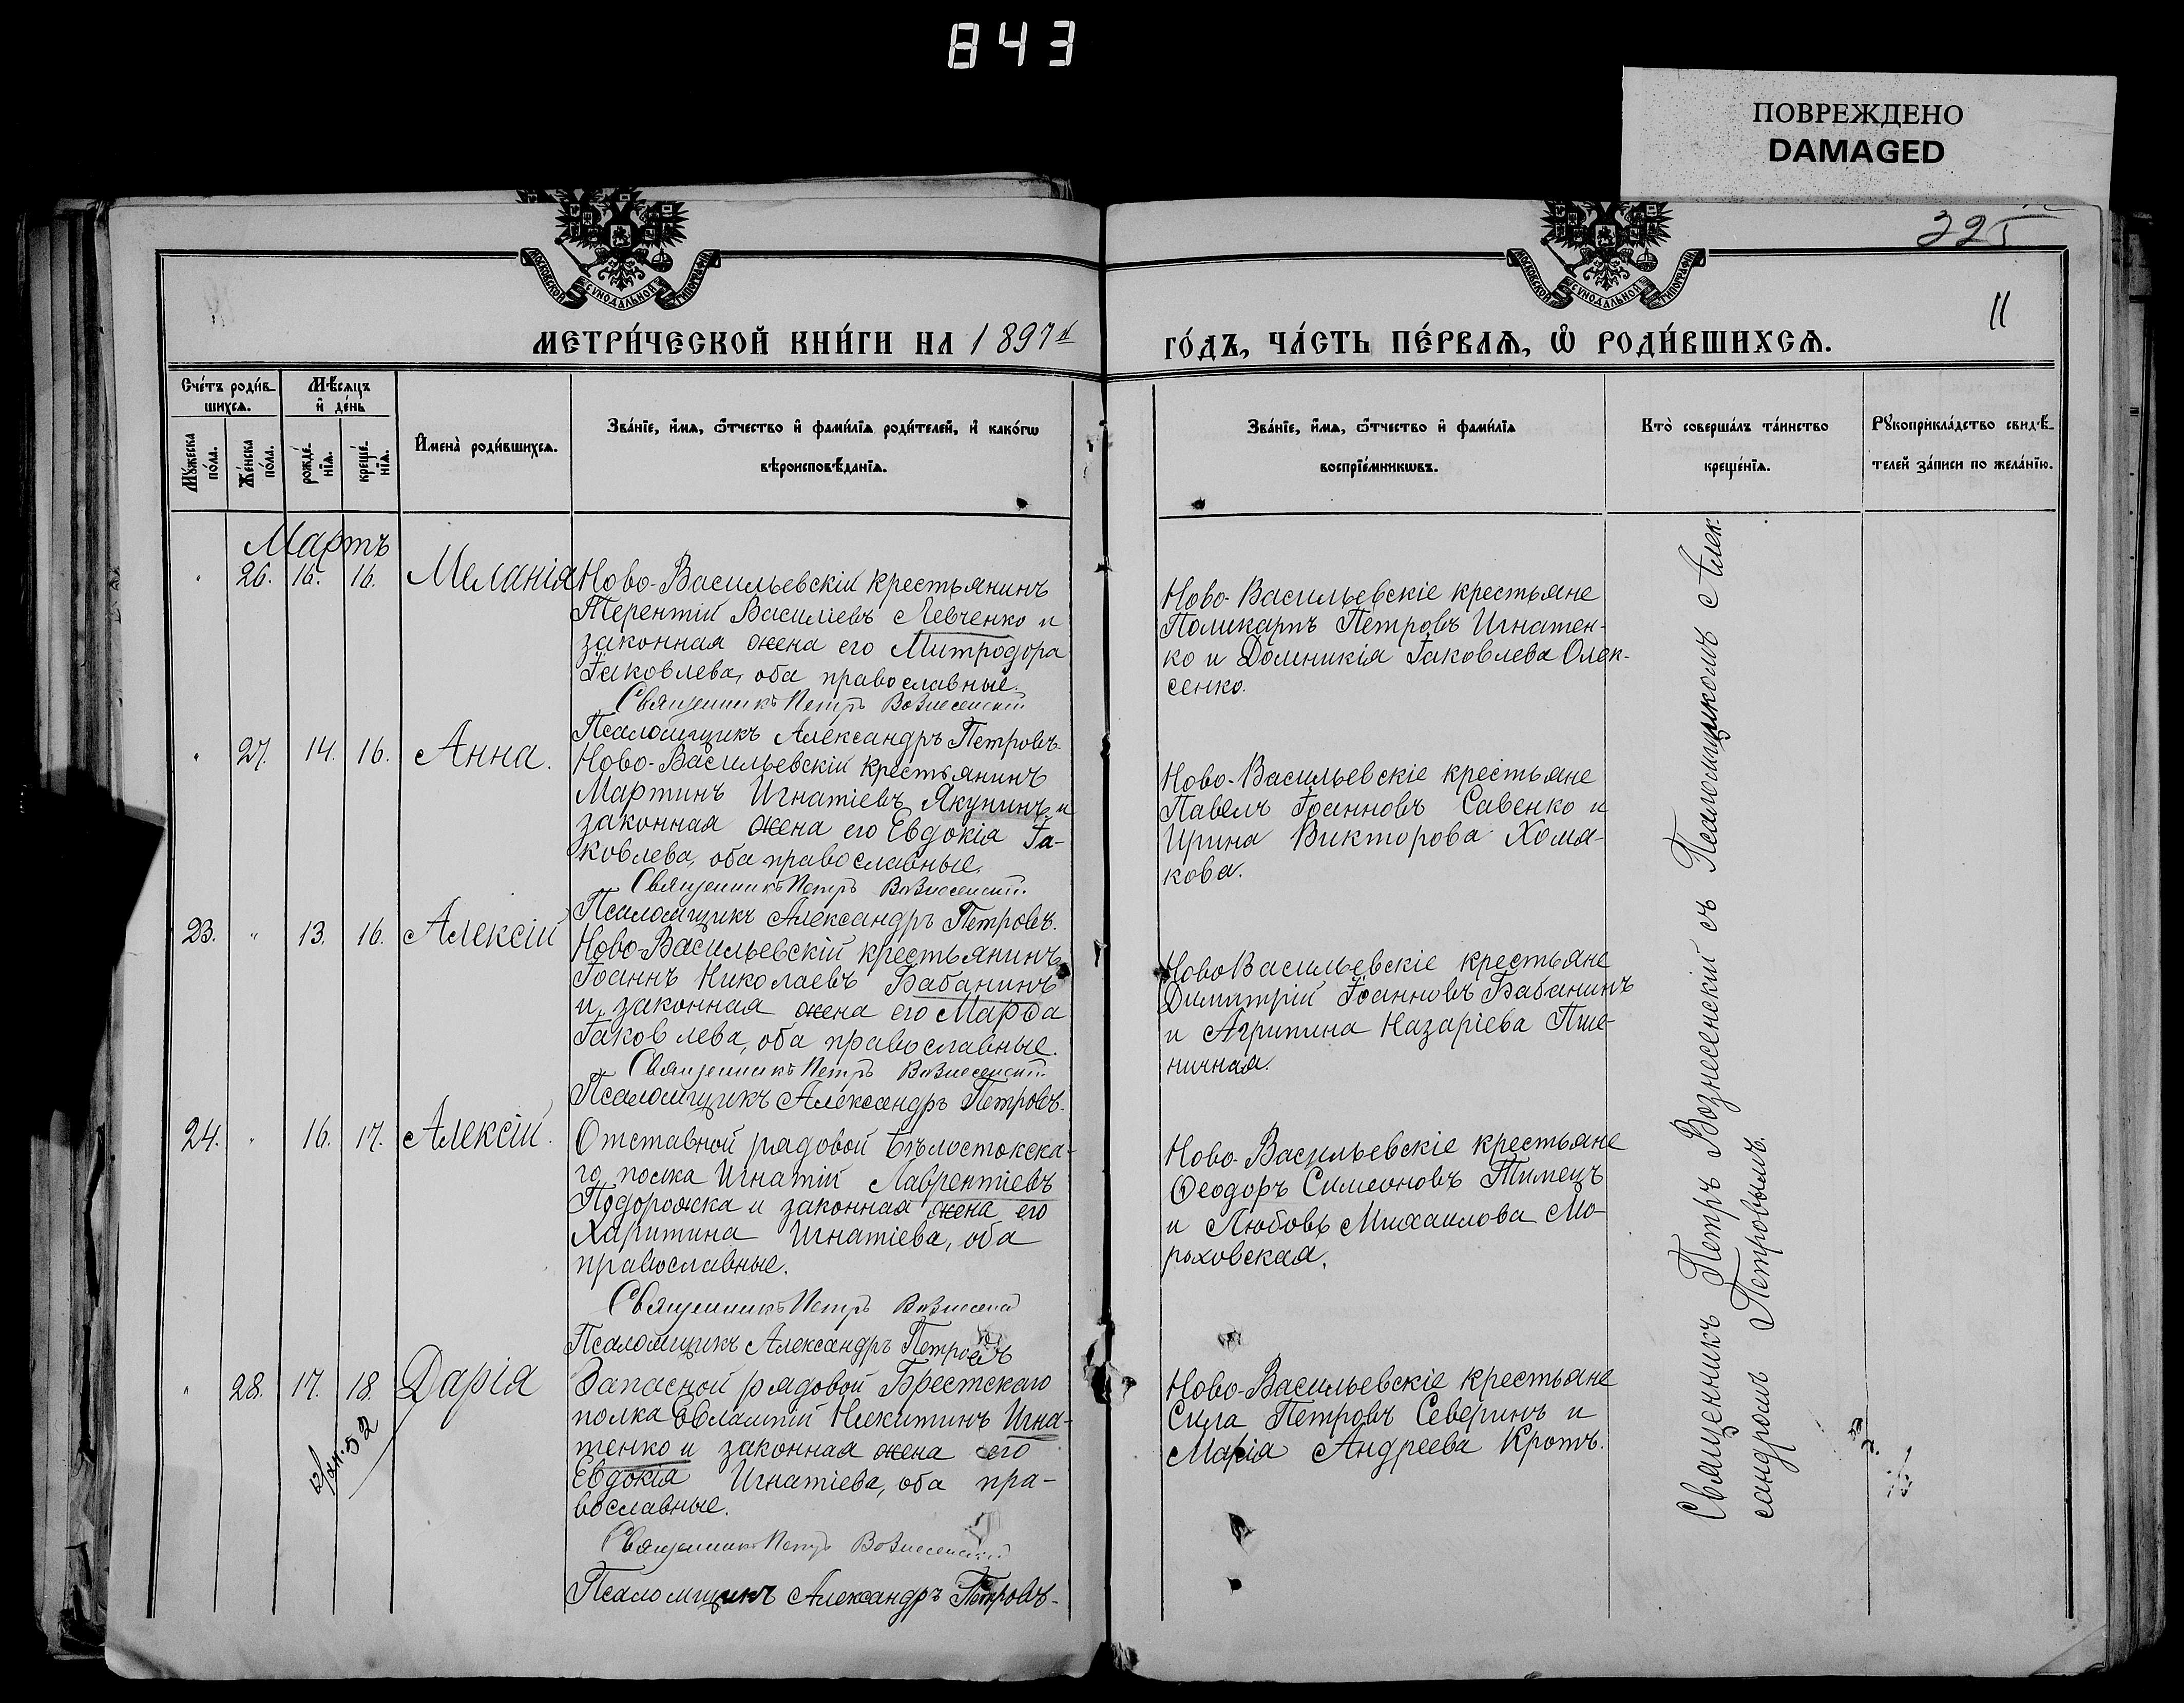 843
ПОВРЕЖДЕНО
DAMAGED
325
11
МОСКОВСКОЙ СѴНОДАЛЬНОЙ ТИПОГРАФІИ
МОСКОВСКОЙ СѴНОДАЛЬНОЙ ТИПОГРАФІИ
МЕТРИ́ЧЕСКОЙ КНИ́ГИ НА 1897й
ГО́ДЪ, ЧА́СТЬ ПЕ́РВАѦ, Ѡ҆ РОДИ́ВШИХСѦ.
Сче́тъ роди́в-
шихсѧ.
Мѣ́сѧцъ
и҆ де́нь
Мꙋ́жеска
по́ла.
Же́нска
по́ла.
рожде́-
нїѧ.
креще́-
нїѧ.
И҆мена̀ роди́вшихсѧ.
Зва́нїе, и҆́мѧ, ѻ҆́тчество и҆ фами́лїѧ роди́телей, и҆ како́гѡ
вѣроисповѣ́данїѧ.
Зва́нїе, и҆́мѧ, ѻ҆́тчество и҆ фами́лїѧ
воспрїе́мникѡвъ.
Кто̀ соверша́лъ та́инство
креще́нїѧ.
Рꙋкоприкла́дство свидѣ́-
телей за́писи по жела́нїю.
Мартъ
" 26. 16. 16. Меланія
Ново-Васильевскій крестьянинъ
Терентій Василіевъ Левченко и
законная жена его Митродора
Іаковлева, оба православные.
Священникъ Петръ Вознесенскій
Псаломщикъ Александръ Петровъ.
Ново-Васильевскіе крестьяне
Поликарпъ Петровъ Игнатен-
ко и Домникія Іаковлева Олек-
сенко.
" 27. 14. 16. Анна.
Ново-Васильевскій крестьянинъ
Мартинъ Игнатіевъ Якунинъ и
законная жена его Евдокія Іа-
ковлева, оба православные.
Священникъ Петръ Вознесенскій
Псаломщикъ Александръ Петровъ.
Ново-Васильевскіе крестьяне
Павелъ Іоанновъ Савенко и
Ирина Викторова Хомя-
кова.
23. " 13. 16. Алексій
Ново-Васильевскій крестьянинъ
Іоаннъ Николаевъ Бабанинъ
и законная жена его Марфа
Іаковлева, оба православные.
Священникъ Петръ Вознесенскій
Псаломщикъ Александръ Петровъ.
НовоВасильевскіе крестьяне
Димитрій Іоанновъ Бабанинъ
и Агрипина Назаріева Пше-
ничная.
24. " 16. 17. Алексій.
Отставной рядовой Бѣлостокска-
го полка Игнатій Лаврентіевъ
Подорожка и законная жена его
Харитина Игнатіева, оба
православные.
Священникъ Петръ Вознесенскій
Псаломщикъ Александръ Петровъ
Ново-Васильевскіе крестьяне
Ѳеодоръ Симеоновъ Тимецъ
и Любовь Михаилова Мо-
роховская.
" 28. 17. 18. Дарія
52
Запасной рядовой Брестскаго
полка Евлампій Никитинъ Игна-
тенко и законная жена его
Евдокія Игнатіева, оба пра-
вославные.
Священникъ Петръ Вознесенскій
Псаломщикъ Александръ Петровъ-
Ново-Васильевскіе крестьяне
Сила Петровъ Северинъ и
Марія Андреева Кротъ.
Священникъ Петръ Вознесенскій съ Псаломщикомъ Алек-
сандромъ Петровымъ.